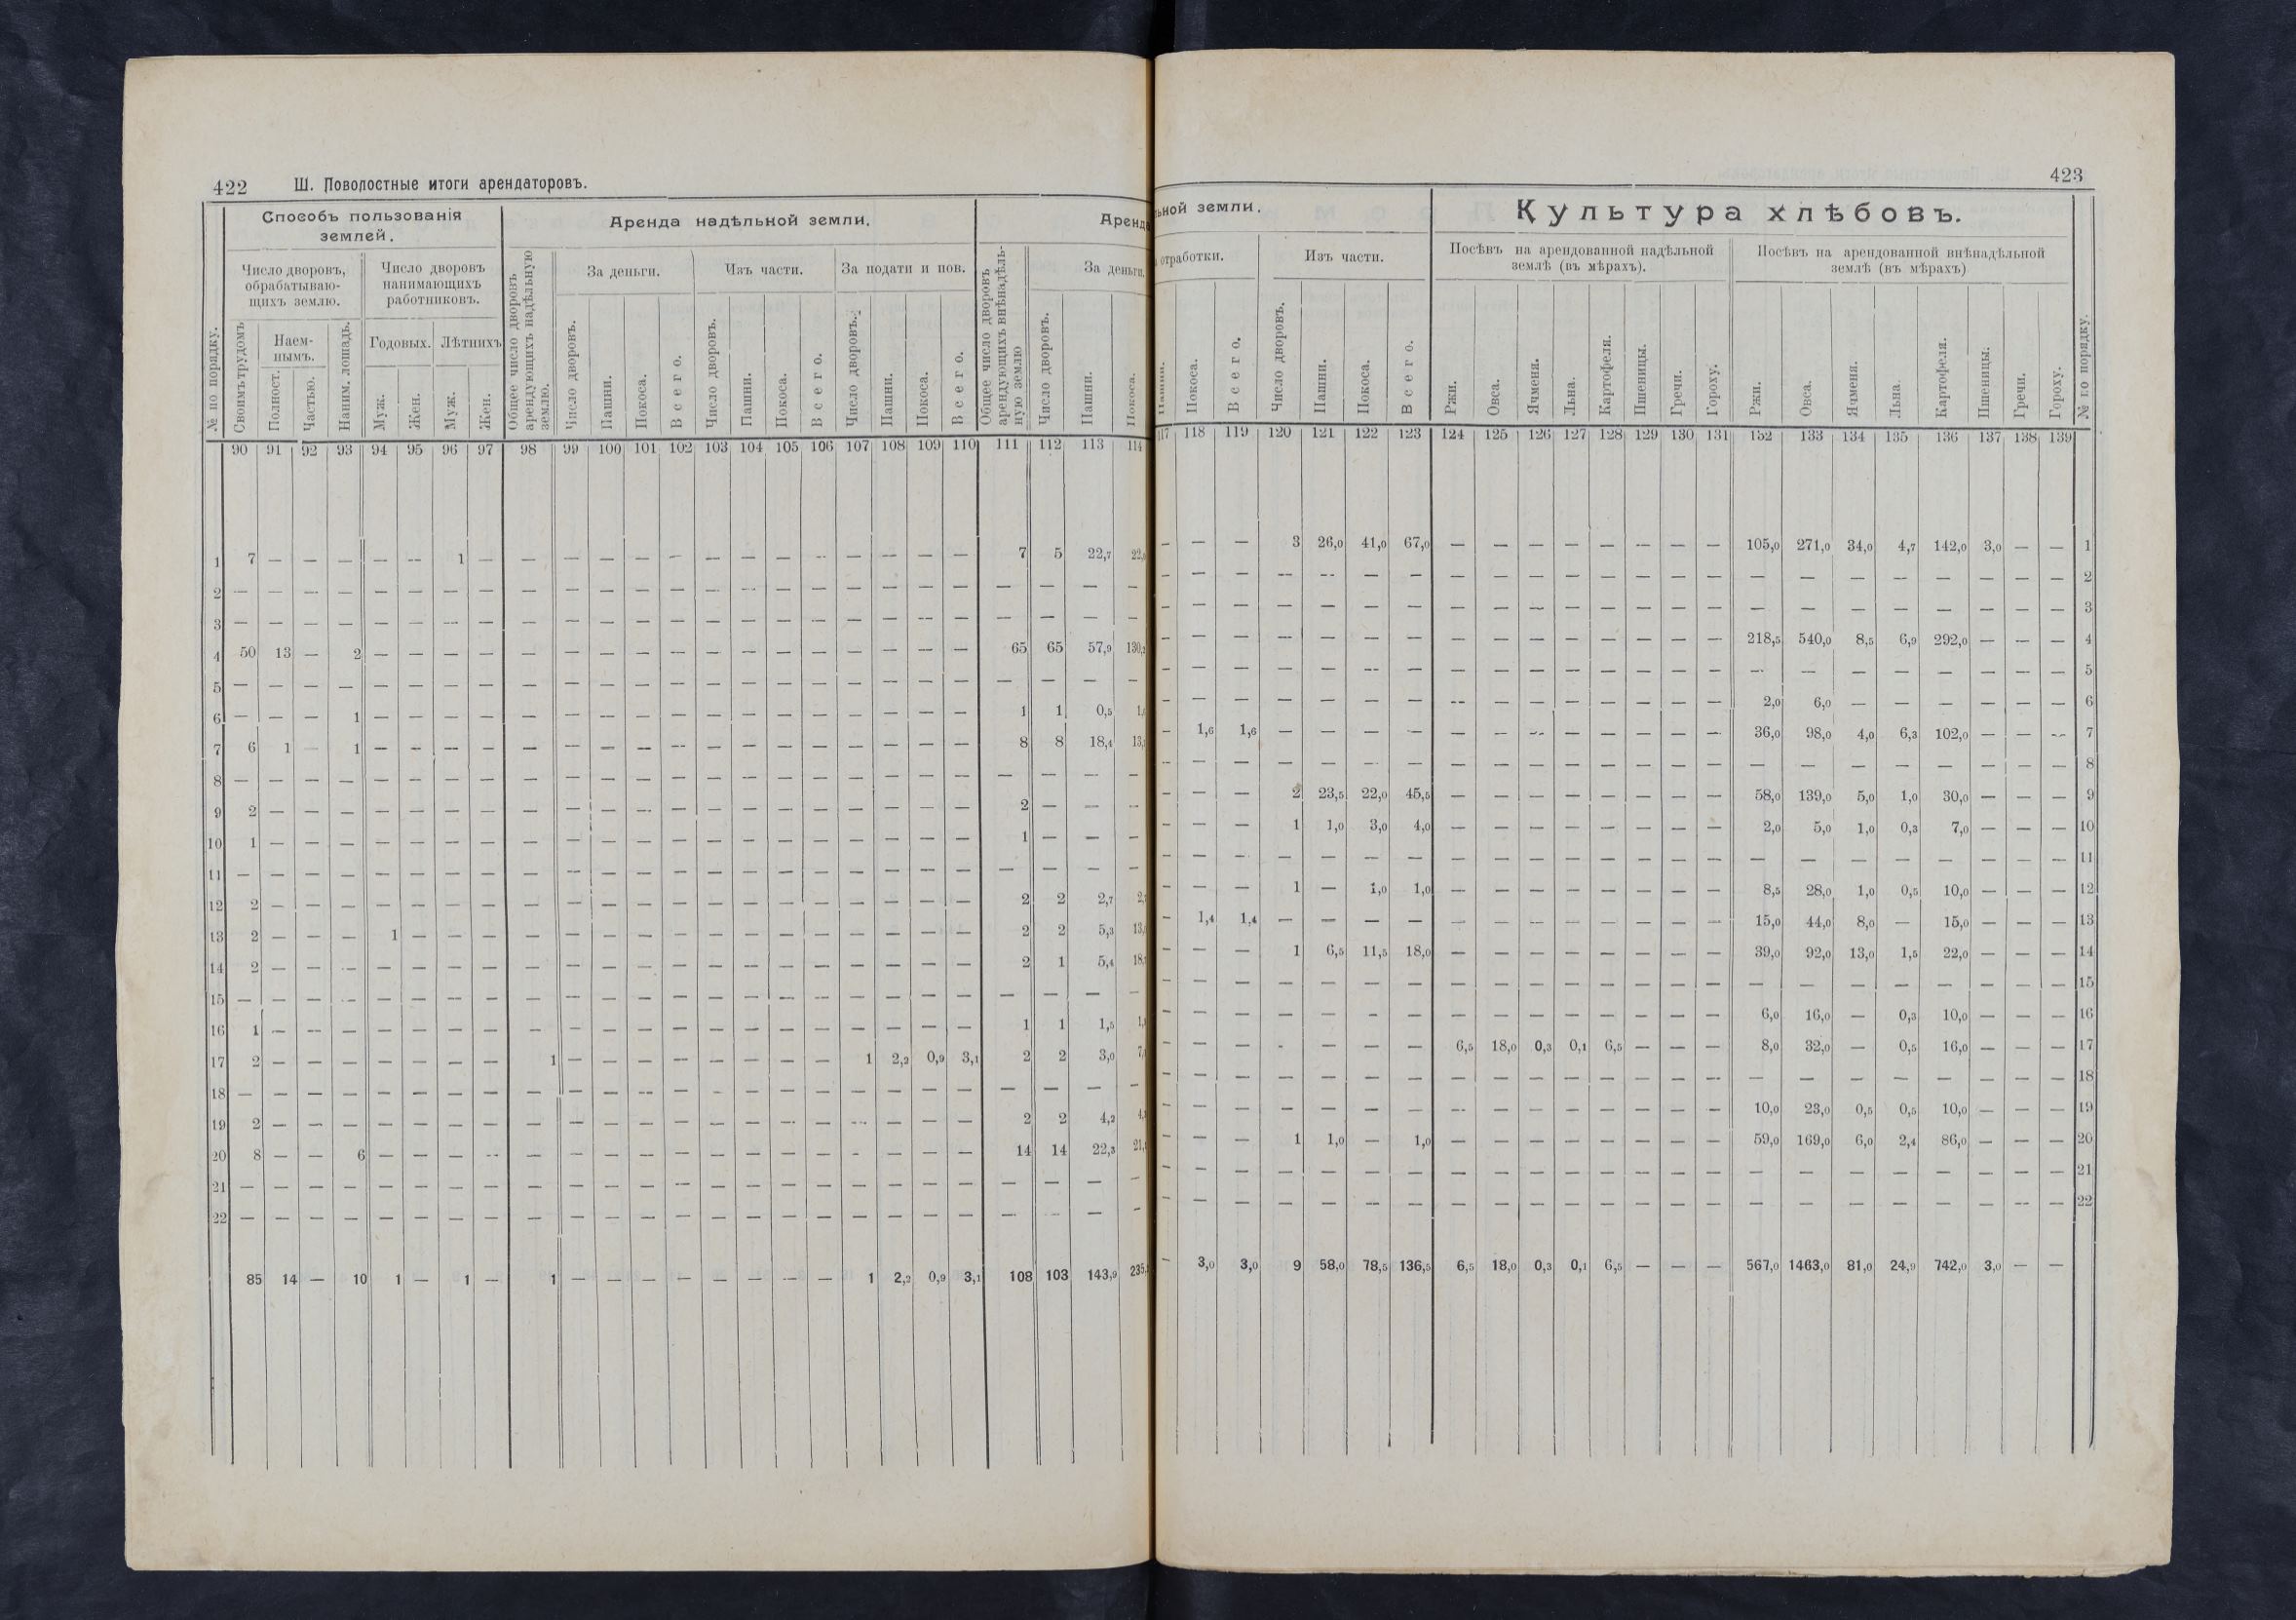 422 Ш. Поволостные итоги арендаторовъ.
Способъ пользованія землей.
Аренда надѣльной земли.
Аренд
Число дворовъ, обрабатываю-щихъ землю.
Число дворовъ нанимающихъ работниковъ.
За деньги.
Изъ части.
За подати и пов.
За деньги.
№ по порядку.
Своимъ трудомъ
Наем-нымъ.
Полност.
Частью.
Наним. лошадь.
Годовыхъ.
Муж.
Жен.
Лѣтнихъ
Муж.
Жен.
Общее число дворовъ арендующихъ надѣльную землю.
Число дворовъ.
Пашни.
Покоса.
Всего.
Число дворовъ.
Пашни.
Покоса.
Всего.
Число дворовъ.
Пашни.
Покоса.
Всего.
Общее число дворовъ арендующихъ внѣнадѣль-ную землю
Число дворовъ.
Пашни.
Покоса.
90 91 92 93 94 95 96 97 98 99 100 101 102 103 104 105 106 107 108 109 110 111 112 113 114
1 7 — — — — — 1 — — — — — — — — — — — — — — 7 5 22,7
2 — — — — — — — — — — — — — — — — — — — — — — — — —
3 — — — — — — — — — — — — — — — — — — — — — — — — —
4 50 13 — 2 — — — — — — — — — — — — — — — — — 65 65 57,9
5 — — — — — — — — — — — — — — — — — — — — — — — — —
6 — — — 1 — — — — — — — — — — — — — — — — — 1 1 0,5
7 6 1 — 1 — — — — — — — — — — — — — — — — — 8 8 18,4
8 — — — — — — — — — — — — — — — — — — — — — — — — —
9 2 — — — — — — — — — — — — — — — — — — — — 2 — — —
10 1 — — — — — — — — — — — — — — — — — — — — 1 — — —
11 — — — — — — — — — — — — — — — — — — — — — — — — —
12 2 — — — — — — — — — — — — — — — — — — — — 2 2 2,7
13 2 — — — 1 — — — — — — — — — — — — — — — — 2 2 5,3
14 2 — — — — — — — — — — — — — — — — — — — — 2 1 5,4
15 — — — — — — — — — — — — — — — — — — — — — — — — —
16 1 — — — — — — — — — — — — — — — — — — — — 1 1 1,5
17 2 — — — — — — — 1 — — — — — — — — 1 2,2 0,9 3,1 2 2 3,0
18 — — — — — — — — — — — — — — — — — — — — — — — — —
19 2 — — — — — — — — — — — — — — — — — — — — 2 2 4,2
20 8 — — 6 — — — — — — — — — — — — — — — — — 14 14 22,3
21 — — — — — — — — — — — — — — — — — — — — — — — — —
22 — — — — — — — — — — — — — — — — — — — — — — — — —
85 14 — 10 1 — 1 — 1 — — — — — — — — 1 2,2 0,9 3,1 108 103 143,9
423
ьной земли.
Культура хлѣбовъ.
отработки.
Изъ части.
Посѣвъ на арендованной надѣльной землѣ (въ мѣрахъ).
Посѣвъ на арендованной внѣнадѣльной землѣ (въ мѣрахъ)
Пашни.
Покоса.
Всего.
Число дворовъ.
Пашни.
Покоса.
Всего.
Ржи.
Овса.
Ячменя.
Льна.
Картофеля.
Пшеницы.
Гречи.
Гороху.
Ржи.
Овса.
Ячменя.
Льна.
Картофеля.
Пшеницы.
Гречи.
Гороху.
№ по порядку.
117 118 119 120 121 122 123 124 125 126 127 128 129 130 131 132 133 134 135 136 137 138 139
— — — 3 26,0 41,0 67,0 — — — — — — — — 105,0 271,0 34,0 4,7 142,0 3,0 — — 1
— — — — — — — — — — — — — — — — — — — — — — — 2
— — — — — — — — — — — — — — — — — — — — — — — 3
— — — — — — — — — — — — — — — 218,5 540,0 8,5 6,9 292,0 — — — 4
— — — — — — — — — — — — — — — — — — — — — — — 5
— — — — — — — — — — — — — — — 2,0 6,0 — — — — — — 6
— 1,6 1,6 — — — — — — — — — — — — 36,0 98,0 4,0 6,3 102,0 — — — 7
— — — — — — — — — — — — — — — — — — — — — — — 8
— — — 2 23,5 22,0 45,5 — — — — — — — — 58,0 139,0 5,0 1,0 30,0 — — — 9
— — — 1 1,0 3,0 4,0 — — — — — — — — 2,0 5,0 1,0 0,3 7,0 — — — 10
— — — — — — — — — — — — — — — — — — — — — — — 11
— — — 1 — 1,0 1,0 — — — — — — — — 8,5 28,0 1,0 0,5 10,0 — — — 12
— 1,4 1,4 — — — — — — — — — — — — 15,0 44,0 8,0 — 15,0 — — — 13
— — — 1 6,5 11,5 18,0 — — — — — — — — 39,0 92,0 13,0 1,5 22,0 — — — 14
— — — — — — — — — — — — — — — — — — — — — — — 15
— — — — — — — — — — — — — — — 6,0 16,0 — 0,3 10,0 — — — 16
— — — — — — — 6,5 18,0 0,3 0,1 6,5 — — — 8,0 32,0 — 0,5 16,0 — — — 17
— — — — — — — — — — — — — — — — — — — — — — — 18
— — — — — — — — — — — — — — — 10,0 23,0 0,5 0,5 10,0 — — — 19
— — — 1 1,0 — 1,0 — — — — — — — — 59,0 169,0 6,0 2,4 86,0 — — — 20
— — — — — — — — — — — — — — — — — — — — — — — 21
— — — — — — — — — — — — — — — — — — — — — — — 22
— 3,0 3,0 9 58,0 78,5 136,5 6,5 18,0 0,3 0,1 6,5 — — — 567,0 1463,0 81,0 24,9 742,0 3,0 — —